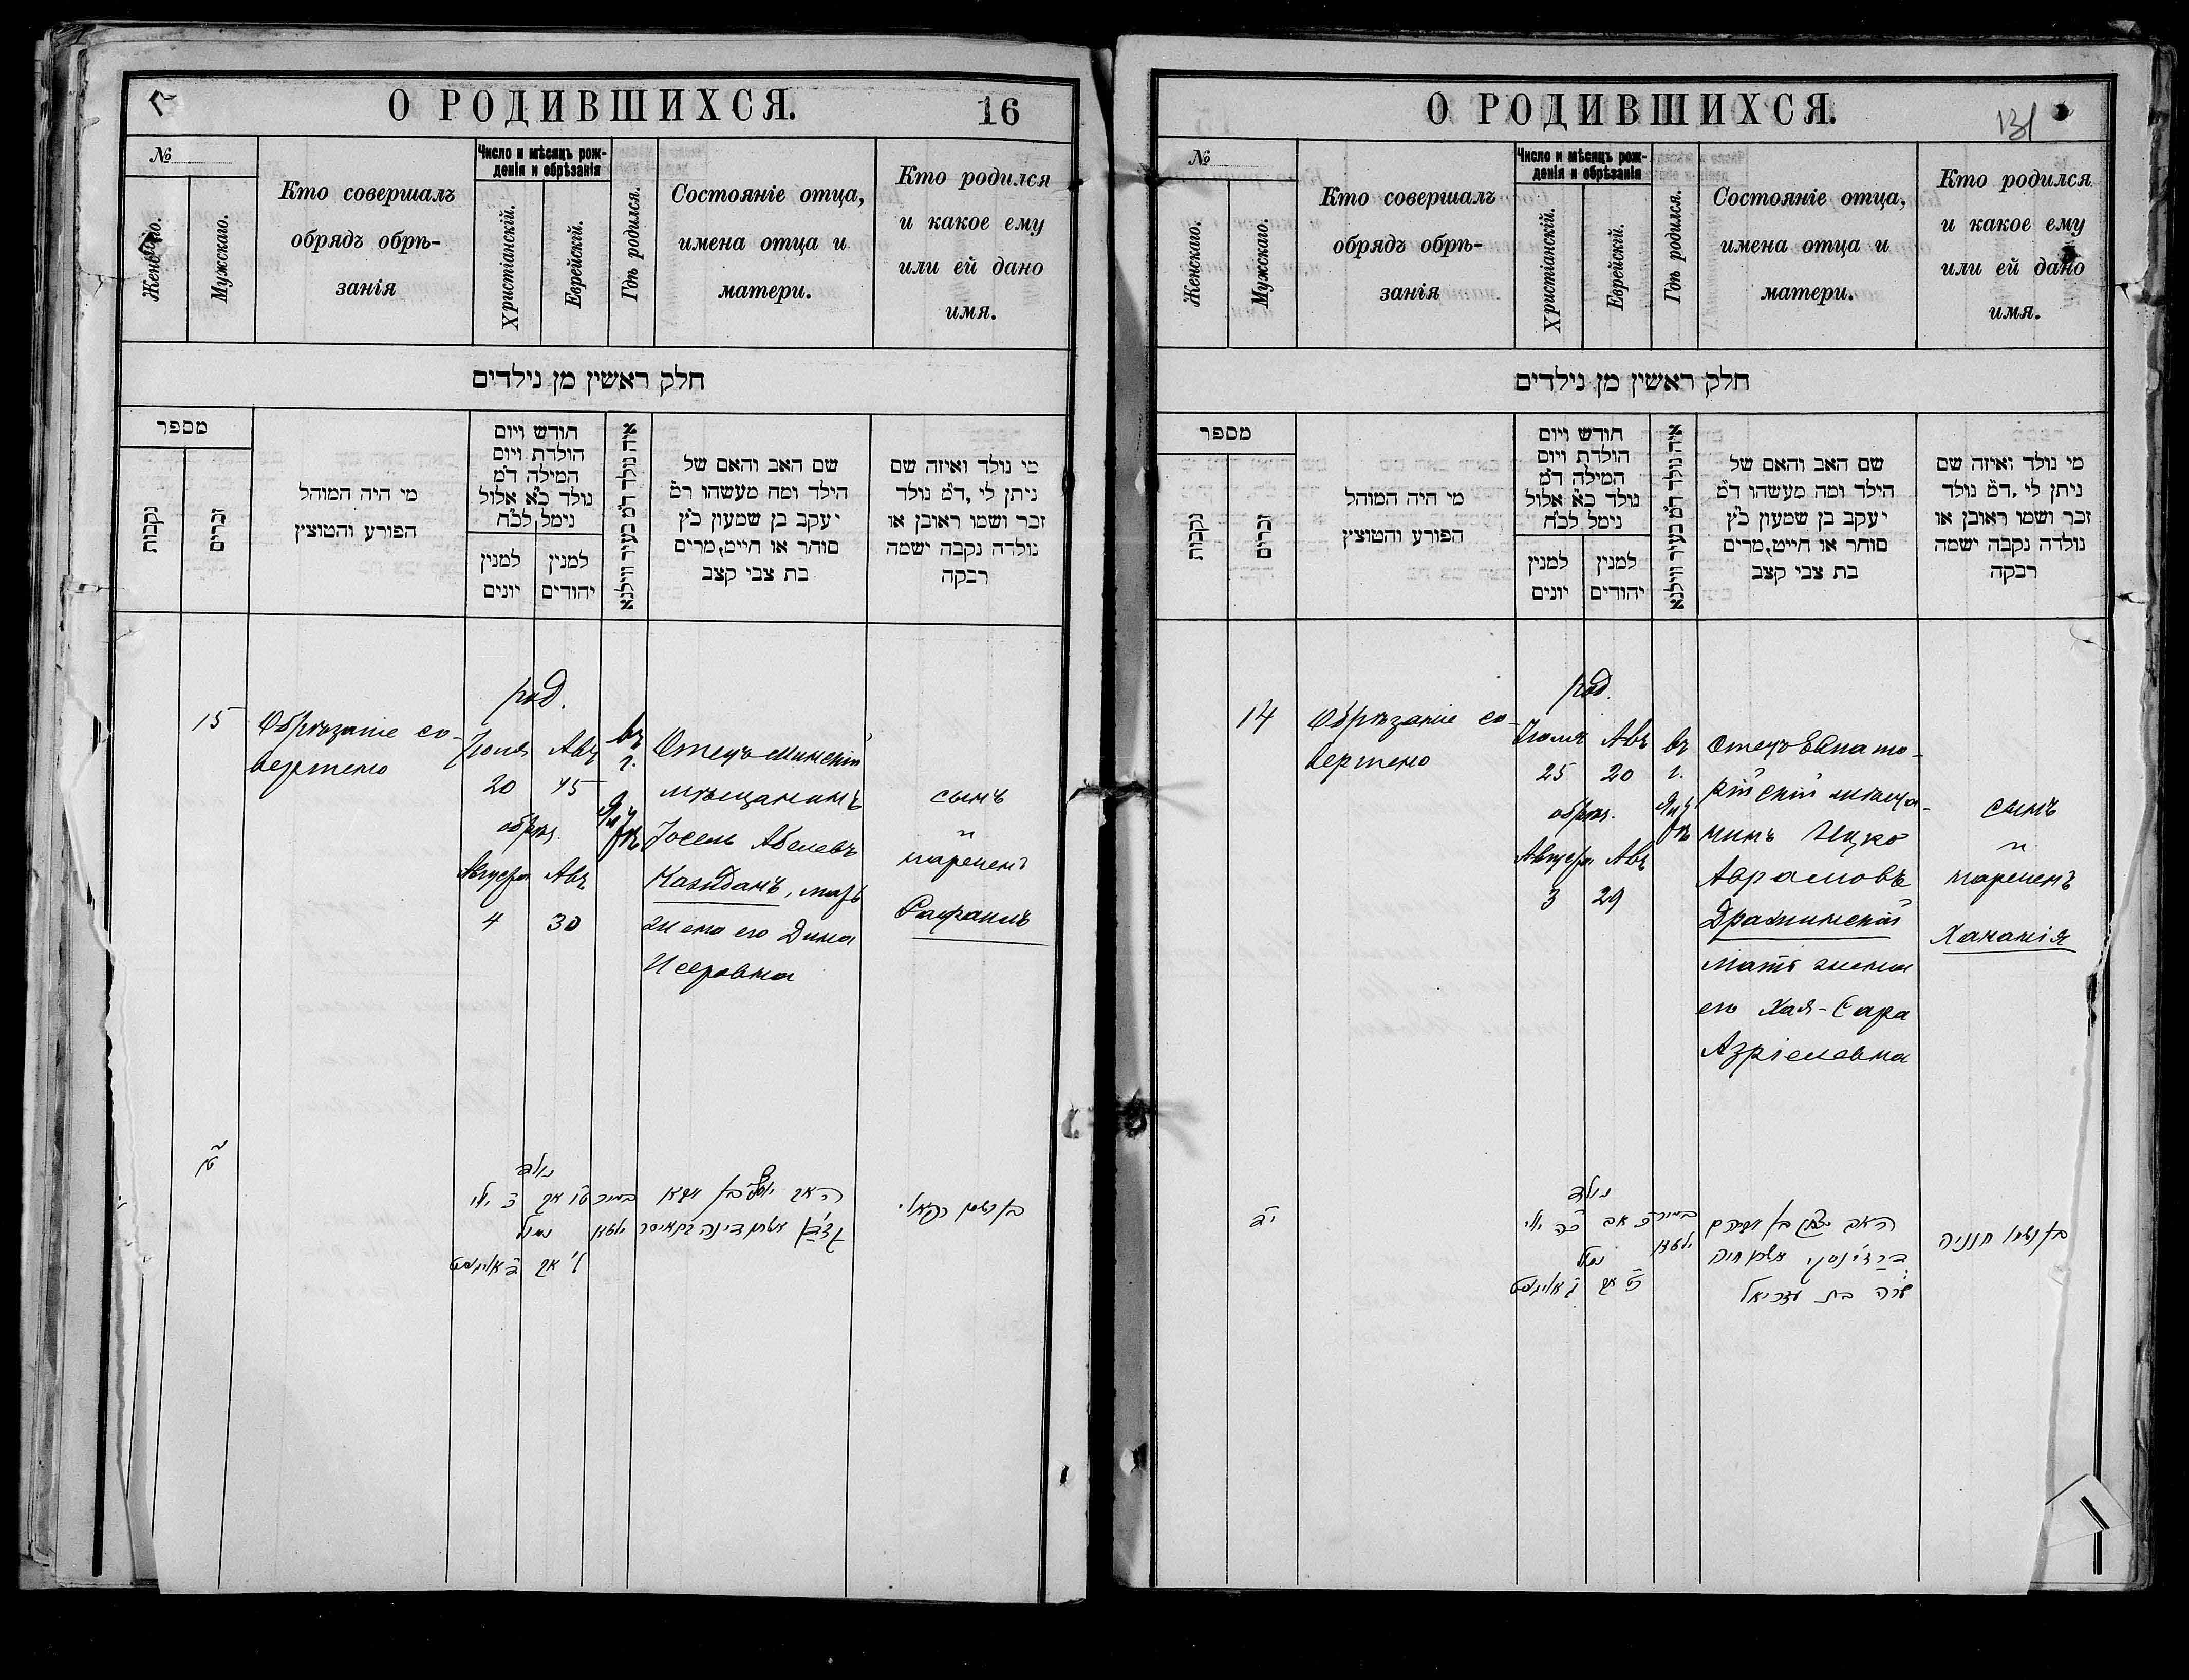 О РОДИВШИХСЯ.
16
№
Женскаго.
Мужскаго.
Кто совершалъ
обрядъ обрѣ-
занія
Число и мѣсяцъ рож-
денія и обрѣзанія
Христіанскій.
Еврейскій.
Гдѣ родился.
Состояніе отца,
имена отца и
матери.
Кто родился
и какое ему
или ей дано
имя.
חלק ראשין מן נילדים
מספר
נקבות
זכרים
מי היה המוהל
הפורע והמוצץ
חודש ויום
הולדת ויום
המילה ד"מ
נולד כ"א אלול
נימל לכ"ח
למנין
יונים
למנין
יהודים
איה נולד ד"מ בעיר ווילנא
שם האב והאם של
הילד ומה מעשהו ד"מ
יעקב בן שמעון כ"ץ
סוחר או חייט, מרים
בת צבי קצב
מי נולד ואיזה שם
ניתן לי, ד"מ נולד
זכר ושמו ראובן או
נולדה נקבה ישמה
רבקה
15
Обрѣзаніе со-
вершено
род.
Іюля Авъ
20 15
обрѣз.
Августа Авъ
4 30
въ
г.
Отецъ Минскій
мѣщанинъ
Іосель Абелевъ
Казданъ, мать
жена его Дина
сынъ
и
нареченъ
Рафаилъ
נולד
נמול
ל' אב
О РОДИВШИХСЯ.
131
№
Женскаго.
Мужскаго.
Кто совершалъ
обрядъ обрѣ-
занія
Число и мѣсяцъ рож-
денія и обрѣзанія
Христіанскій.
Еврейскій.
Гдѣ родился.
Состояніе отца,
имена отца и
матери.
Кто родился
и какое ему
или ей дано
имя.
חלק ראשין מן נילדים
מספר
נקבות
זכרים
מי היה המוהל
הפורע והמוצץ
חודש ויום
הולדת ויום
המילה ד"מ
נולד כ"א אלול
נימל לכ"ח
למנין
יונים
למנין
יהודים
איה נולד ד"מ בעיר ווילנא
שם האב והאם של
הילד ומה מעשהו ד"מ
יעקב בן שמעון כ"ץ
סוחר או חייט, מרים
בת צבי קצב
מי נולד ואיזה שם
ניתן לי, ד"מ נולד
זכר ושמו ראובן או
נולדה נקבה ישמה
רבקה
14
Обрѣзаніе со-
вершено
род.
Іюля Авъ
25 20
обрѣз.
Августа Авъ
3 29
въ
г.
Отецъ Евпато-
рійскій мѣща-
нинъ Ицко
Аврамовъ
мать жена
его Хая-Сара
Азріелевна
сынъ
и
нареченъ
Хананія
נולד
נמול
האב יצחק בן אברהם
שרה בת עזריאל
בן ושמו חנניה